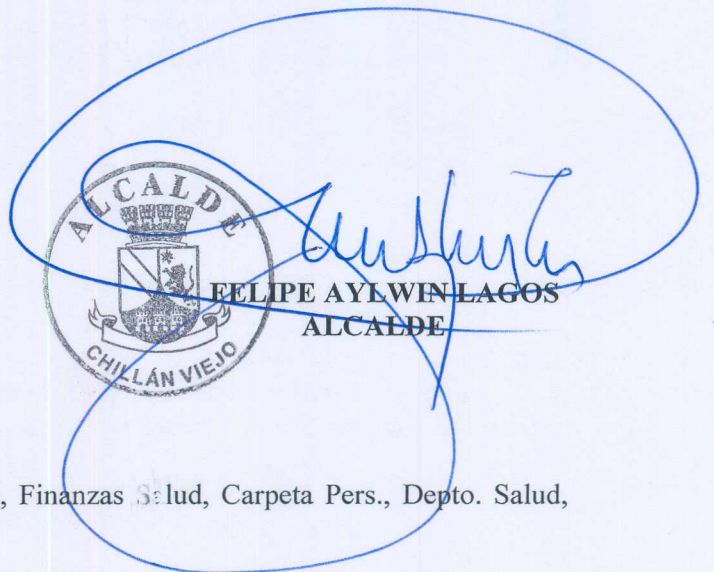 ALCALDE
CHILLÁN VIEJO
FELIPE AYLWIN LAGOS
ALCALDE
, Finanzas Salud, Carpeta Pers., Depto. Salud,